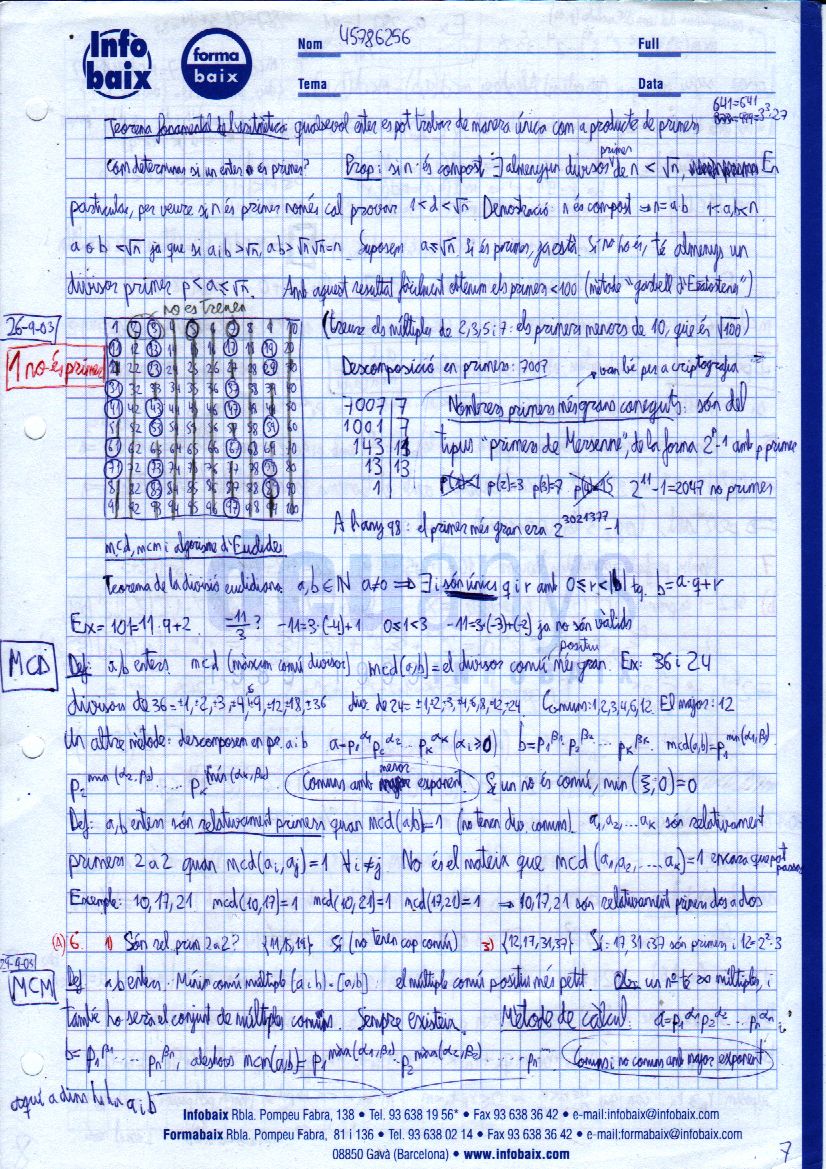 Info baix
forma baix
Nom 45786256 Full
Tema Data
641=641
=3³·27
Teorema fonamental de l'aritmètica: qualsevol enter es pot trobar de manera única com a producte de primers
Com determinar si un enter n és primer? Prop: si n és compost ∃ almenys un divisor primer de n < √n, En
particular, per veure si n és primer només cal provar 1<d<√n. Demostració: n és compost ⇒ n=a·b 1<a,b<n.
a o b <√n ja que si a i b >√n, ab>√n√n=n. Suposem a≤√n. Si és primer, ja està. Si no ho és, té almenys un
divisor primer p<a≤√n. Amb aquest resultat fàcilment obtenim els primers <100 (mètode "garbell d'Eratòstenes")
no es treuen
26-9-03
(treure els múltiples de 2,3,5 i 7: els primers menors de 10, que és √100)
1 no és primer
1 2 3 4 5 6 7 8 9 10
11 12 13 14 15 16 17 18 19 20
21 22 23 24 25 26 27 28 29 30
31 32 33 34 35 36 37 38 39 40
41 42 43 44 45 46 47 48 49 50
51 52 53 54 55 56 57 58 59 60
61 62 63 64 65 66 67 68 69 70
71 72 73 74 75 76 77 78 79 80
81 82 83 84 85 86 87 88 89 90
91 92 93 94 95 96 97 98 99 100
Descomposició en primers: 7007
van bé per a criptografia
7007 7
1001 7
143 11
13 13
1
Nombres primers més grans coneguts: són del
tipus "primers de Mersenne", de la forma 2^p-1 amb p primer
p(2)=3 p(3)=7 p(4)=15 2^11-1=2047 no primer
A l'any 98: el primer més gran era 2^3021377-1
mcd, mcm i algorisme d'Euclides
Teorema de la divisió euclidiana: a,b ∈ N a≠0 ⇒ ∃ i són únics q i r amb 0≤r<|b| tq. b=a·q+r
Ex= 101=11·9+2. -11/3? -11=3·(-4)+1 0≤1<3 -11=3·(-3)+(-2) ja no són vàlids
MCD
Def: a,b enters. mcd (màxim comú divisor) mcd(a,b)=el divisor comú positiu més gran. Ex: 36 i 24
divisors de 36=±1,±2,±3,±4,±6,±9,±12,±18,±36 div. de 24=±1,±2,±3,±4,±6,±8,±12,±24 Comuns:1,2,3,4,6,12. El major: 12
Un altre mètode: descomposem en pr. a i b a=p₁^α₁ p₂^α₂ ... pₖ^αₖ (αᵢ≥0) b=p₁^β₁ p₂^β₂ ... pₖ^βₖ. mcd(a,b)=p₁^min(α₁,β₁)
p₂^min(α₂,β₂) ..... pₖ^min(αₖ,βₖ) Comuns amb menor exponent. Si un no és comú, min(ξ,0)=0
Def: a,b enters són relativament primers quan mcd(a,b)=1 (no tenen div. comuns). a₁,a₂,...aₖ són relativament
primers 2 a 2 quan mcd(aᵢ,aⱼ)=1 ∀i≠j. No és el mateix que mcd(a₁,a₂,...,aₖ)=1 encara que pot passar
Exemple: 10,17,21 mcd(10,17)=1 mcd(10,21)=1 mcd(17,21)=1 ⇒ 10,17,21 són relativament primers dos a dos
(A) 6. 1) Són rel. prim 2 a 2? {11,15,19} Sí (no tenen cap comú) 3) {12,17,31,37} Sí: 17,31 i 37 són primers, i 12=2²·3
29-9-03
MCM
Def a,b enters. Mínim comú múltiple (a i b)=[a,b]: el múltiple comú positiu més petit. Obs: un nº té ∞ múltiples, i
també ho serà el conjunt de múltiples comuns. Sempre existeix. Mètode de càlcul: a=p₁^α₁ p₂^α₂ ... pₙ^αₙ i
b=p₁^β₁ ... pₙ^βₙ, aleshores mcm(a,b)=p₁^màx(α₁,β₁)·p₂^màx(α₂,β₂) ..... pₙ Comuns i no comuns amb major exponent
aquí a dins hi ha a i b
Infobaix Rbla. Pompeu Fabra, 138 • Tel. 93 638 19 56* • Fax 93 638 36 42 • e-mail:infobaix@infobaix.com
Formabaix Rbla. Pompeu Fabra, 81 i 136 • Tel. 93 638 02 14 • Fax 93 638 36 42 • e-mail:formabaix@infobaix.com
08850 Gavà (Barcelona) • www.infobaix.com
7